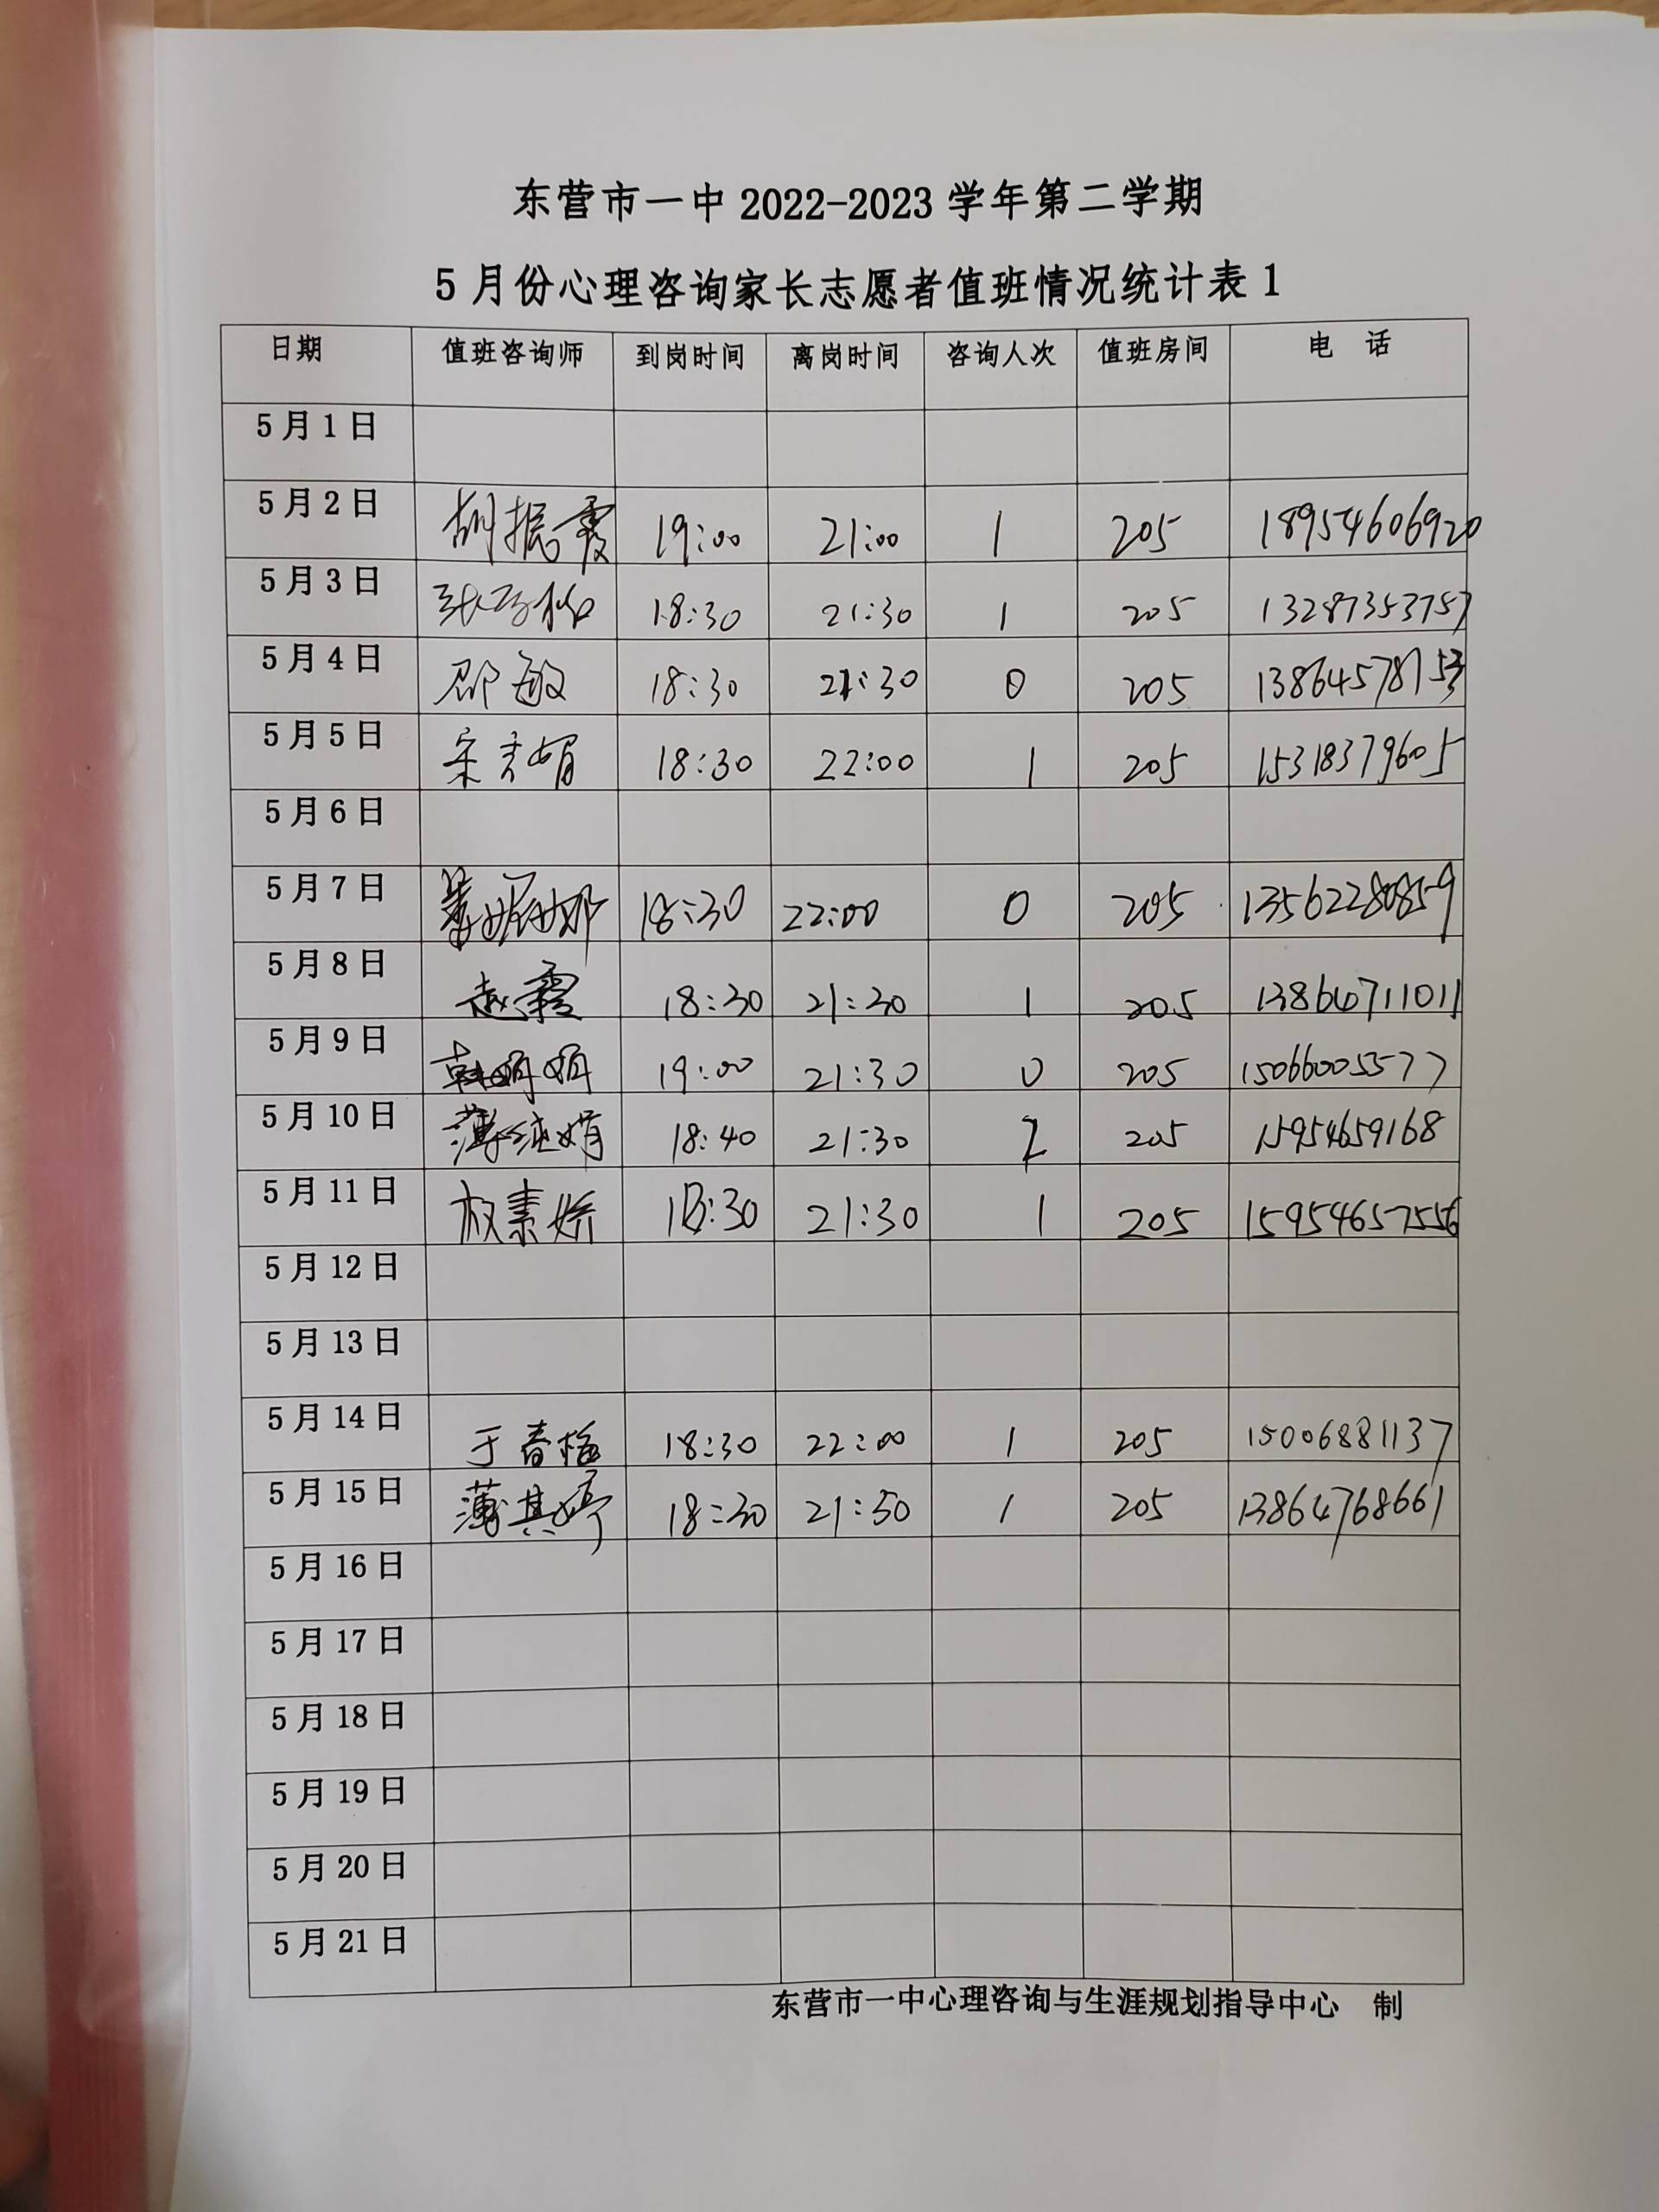 东营市一中 2022-2023 学年第二学期
5 月份心理咨询家长志愿者值班情况统计表 1
日期 值班咨询师 到岗时间 离岗时间 咨询人次 值班房间 电 话
5 月 1 日
5 月 2 日 胡振霞 19:00 21:00 1 205 18954606920
5 月 3 日 18:30 21:30 1 205 13287353757
5 月 4 日 邵敏 18:30 21:30 0 205 13864578153
5 月 5 日 18:30 22:00 1 205 15318379605
5 月 6 日
5 月 7 日 18:30 22:00 0 205 13562280859
5 月 8 日 赵霞 18:30 21:30 1 205 13864711011
5 月 9 日 韩娟娟 19:00 21:30 0 205 15066005577
5 月 10 日 薄纯娟 18:40 21:30 2 205 15954659168
5 月 11 日 权素娇 18:30 21:30 1 205 15954657556
5 月 12 日
5 月 13 日
5 月 14 日 于春梅 18:30 22:00 1 205 15006881137
5 月 15 日 薄其婷 18:30 21:50 1 205 13864768661
5 月 16 日
5 月 17 日
5 月 18 日
5 月 19 日
5 月 20 日
5 月 21 日
东营市一中心理咨询与生涯规划指导中心 制